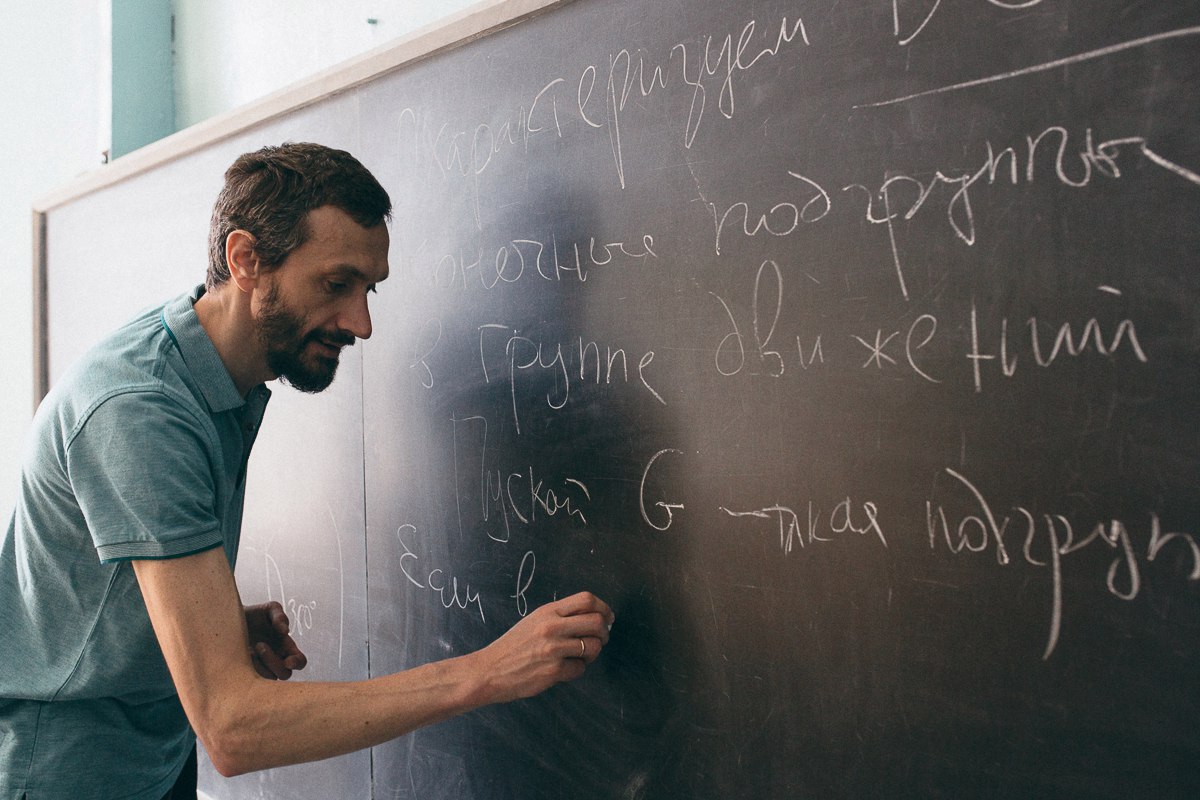 Характеризуем
конечные подгруппы
в группе движений
Пускай G – такая подгруп
Если в